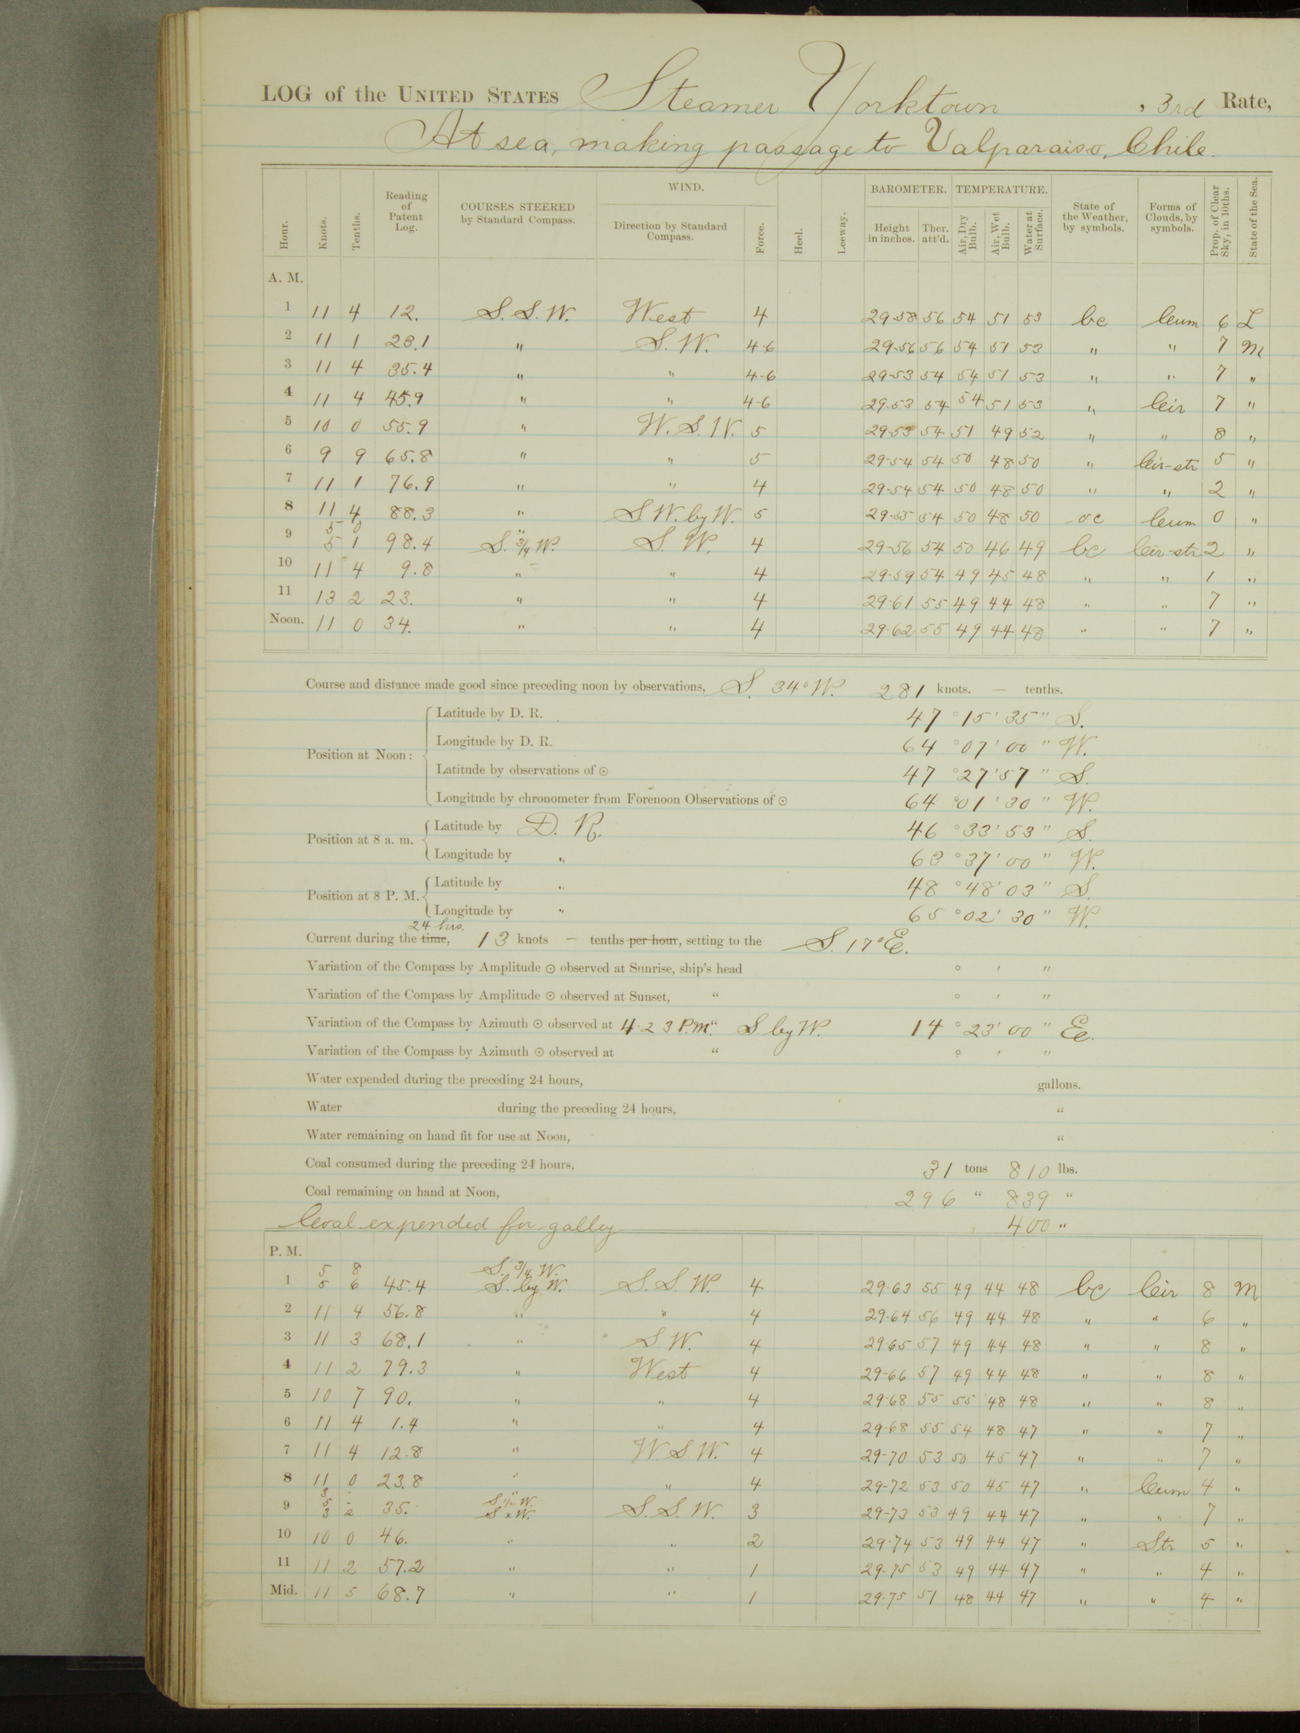 LOG of the UNITED STATES Steamer Yorktown , 3rd Rate,
At sea, making passage to Valparaiso, Chile.
Hour. Knots. Tenths. Reading of Patent Log. COURSES STEERED by Standard Compass. WIND. Direction by Standard Compass. Force. Heel. Leeway. BAROMETER. Height in inches. Ther. att'd. TEMPERATURE. Air, Dry Bulb. Air, Wet Bulb. Water at Surface. State of the Weather, by symbols. Forms of Clouds, by symbols. Prop. of Clear Sky, in 10ths. State of the Sea.
A. M.
1 11 4 12. S. S. W. West 4 29.58 56 54 51 53 bc Cum 6 L
2 11 1 23.1 " S. W. 4-6 29.56 56 54 51 53 " " 7 M
3 11 4 35.4 " " 4-6 29.53 54 54 51 53 " " 7 "
4 11 4 45.9 " " 4-6 29.53 54 54 51 53 " Cir 7 "
5 10 0 55.9 " W. S. W. 5 29.53 54 51 49 52 " " 8 "
6 9 9 65.8 " " 5 29.54 54 50 48 50 " Cir-str 5 "
7 11 1 76.9 " " 4 29.54 54 50 48 50 " " 2 "
8 11 4 88.3 " S W. by W. 5 29.55 54 50 48 50 oc Cum 0 "
5 0 "
9 5 1 98.4 S. 3/4 W. S. W. 4 29.56 54 50 46 49 bc Cir-str 2 "
10 11 4 9.8 " " 4 29.59 54 49 45 48 " " 1 "
11 13 2 23. " " 4 29.61 55 49 44 48 " " 7 "
Noon. 11 0 34. " " 4 29.62 55 49 44 48 " " 7 "
Course and distance made good since preceding noon by observations, S. 34° W. 281 knots. — tenths.
Position at Noon: Latitude by D. R. 47 ° 15 ' 35 " S.
Longitude by D. R. 64 ° 07 ' 00 " W.
Latitude by observations of ☉ 47 ° 27 ' 57 " S.
Longitude by chronometer from Forenoon Observations of ☉ 64 ° 01 ' 30 " W.
Position at 8 a. m. Latitude by D. R. 46 ° 33 ' 53 " S.
Longitude by " 63 ° 37 ' 00 " W.
Position at 8 P. M. Latitude by " 48 ° 48 ' 03 " S.
Longitude by " 65 ° 02 ' 30 " W.
24 hrs.
Current during the time, 13 knots — tenths per hour, setting to the S. 17° E.
Variation of the Compass by Amplitude ☉ observed at Sunrise, ship's head ° ' "
Variation of the Compass by Amplitude ☉ observed at Sunset, " ° ' "
Variation of the Compass by Azimuth ☉ observed at 4.23 P.M. " S by W. 14 ° 23 ' 00 " E.
Variation of the Compass by Azimuth ☉ observed at " ° ' "
Water expended during the preceding 24 hours, gallons.
Water during the preceding 24 hours, "
Water remaining on hand fit for use at Noon, "
Coal consumed during the preceding 24 hours, 31 tons 810 lbs.
Coal remaining on hand at Noon, 296 " 839 "
Coal expended for galley 400 "
P. M.
5 8 S. 3/4 W.
1 5 6 45.4 S. by W. S. S. W. 4 29.63 55 49 44 48 bc Cir 8 M
2 11 4 56.8 " " 4 29.64 56 49 44 48 " " 6 "
3 11 3 68.1 " S W. 4 29.65 57 49 44 48 " " 8 "
4 11 2 79.3 " West 4 29.66 57 49 44 48 " " 8 "
5 10 7 90. " " 4 29.68 55 55 48 48 " " 8 "
6 11 4 1.4 " " 4 29.68 55 54 48 47 " " 7 "
7 11 4 12.8 " W. S. W. 4 29.70 53 50 45 47 " " 7 "
8 11 0 23.8 " " 4 29.72 53 50 45 47 " Cum 4 "
9 3 2 35. S. S. W. 3 29.73 53 49 44 47 " " 7 "
10 10 0 46. " " 2 29.74 53 49 44 47 " Str 5 "
11 11 2 57.2 " " 1 29.75 53 49 44 47 " " 4 "
Mid. 11 5 68.7 " " 1 29.75 51 48 44 47 " " 4 "